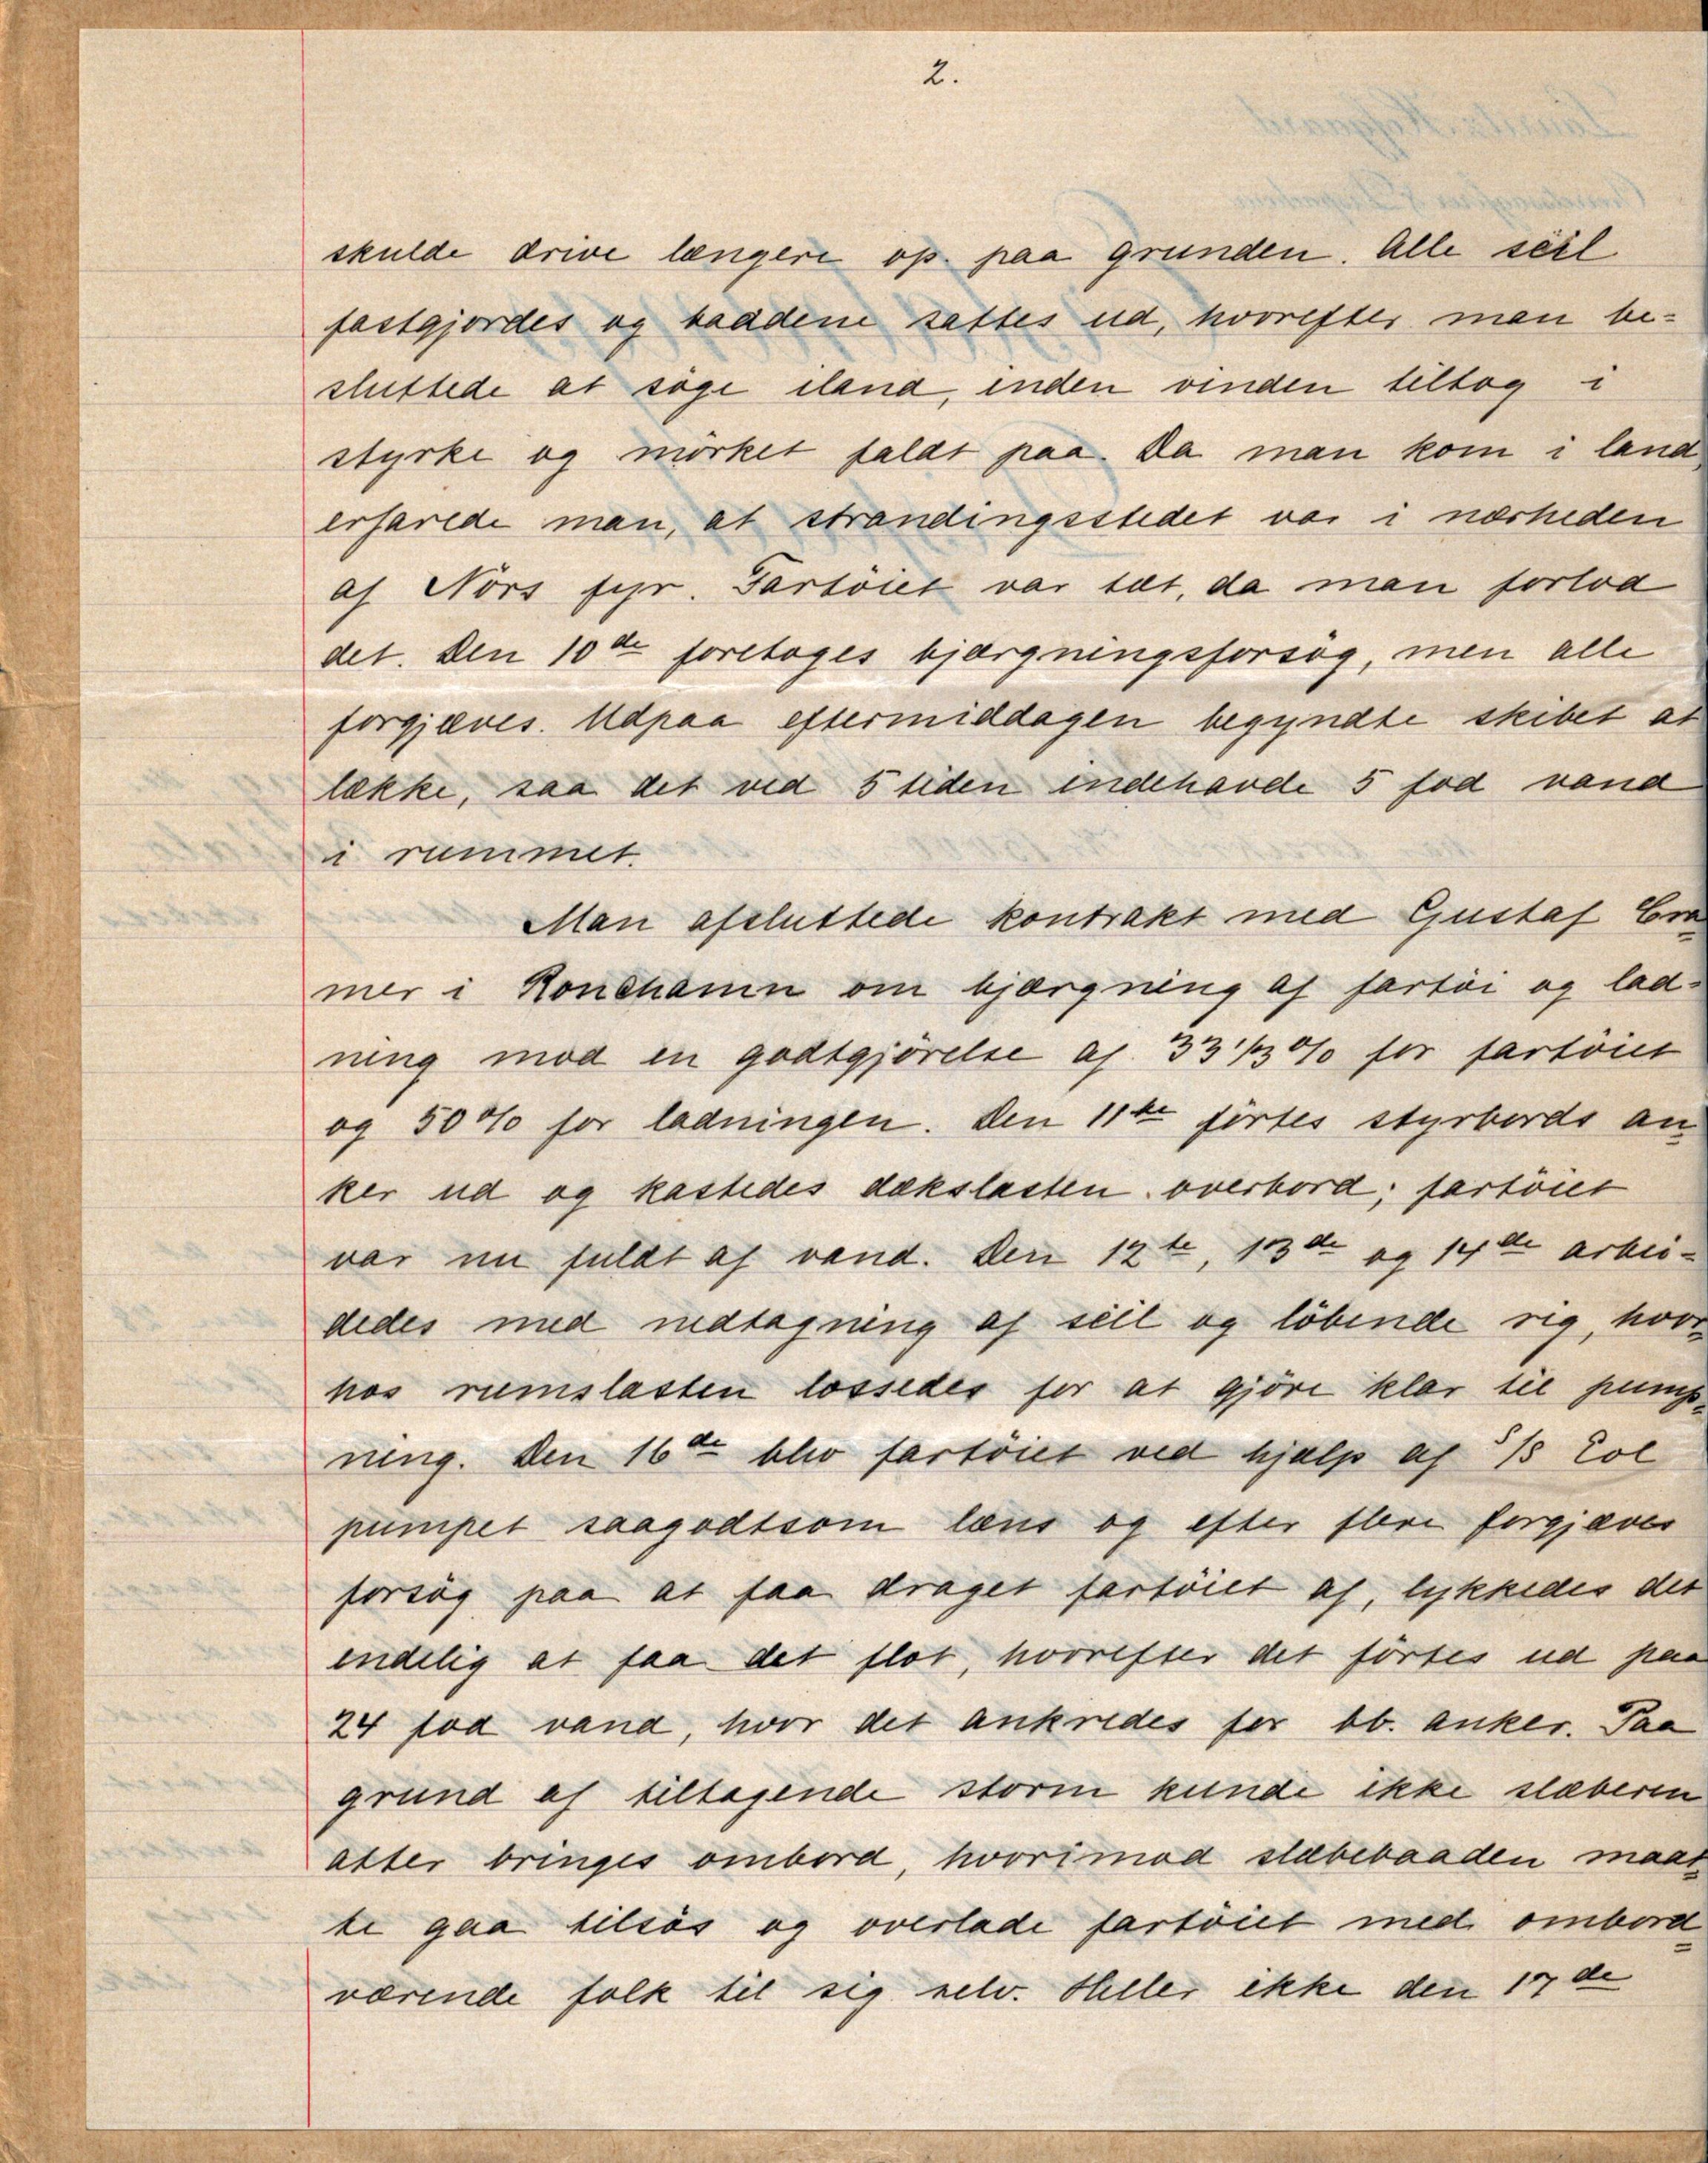 2.
skulde drive længere op paa grunden. Alle seil
fastgjordes og baadene sattes ud, hvorefter man be-
sluttede at söge iland, inden vinden tiltog i
styrke og mörket faldt paa. Da man kom i land,
erfarede man, at strandingsstedet var i nærheden
af Nörs fyr. Fartöiet var tæt, da man forlod
det. Den 10de foretoges bjærgningsforsög, men alle
forgjæves. Udpaa eftermiddagen begyndte skibet at
lække, saa det ved 5 tiden indehavde 5 fod vand
i rummet.
Man afsluttede kontrakt med Gustaf Cra-
mer i Ronehamn om bjærgning af fartöi og lad-
ning mod en godtgjörelse af 33 1/3 % for fartöiet
og 50 % for ladningen. Den 11te förtes styrbords an-
ker ud og kastedes dækslasten overbord; fartöiet
var nu fuldt af vand. Den 12te, 13de og 14de arbei-
dedes med nedtagning af seil og löbende rig, hvor-
hos rumslasten lossedes for at gjöre klar til pump-
ning. Den 16de blev fartöiet ved hjælp af S/S Eol
pumpet saagodtsom læns og efter flere forgjæves
forsög paa at faa draget fartöiet af, lykkedes det
endelig at faa det flot, hvorefter det förtes ud paa
24 fod vand, hvor det ankredes for bb. anker. Paa
grund af tiltagende storm kunde ikke slæberen
atter bringes ombord, hvorimod slæbebaaden maat-
te gaa tilsös og overlade fartöiet med ombord-
værende folk til sig selv. Heller ikke den 17de